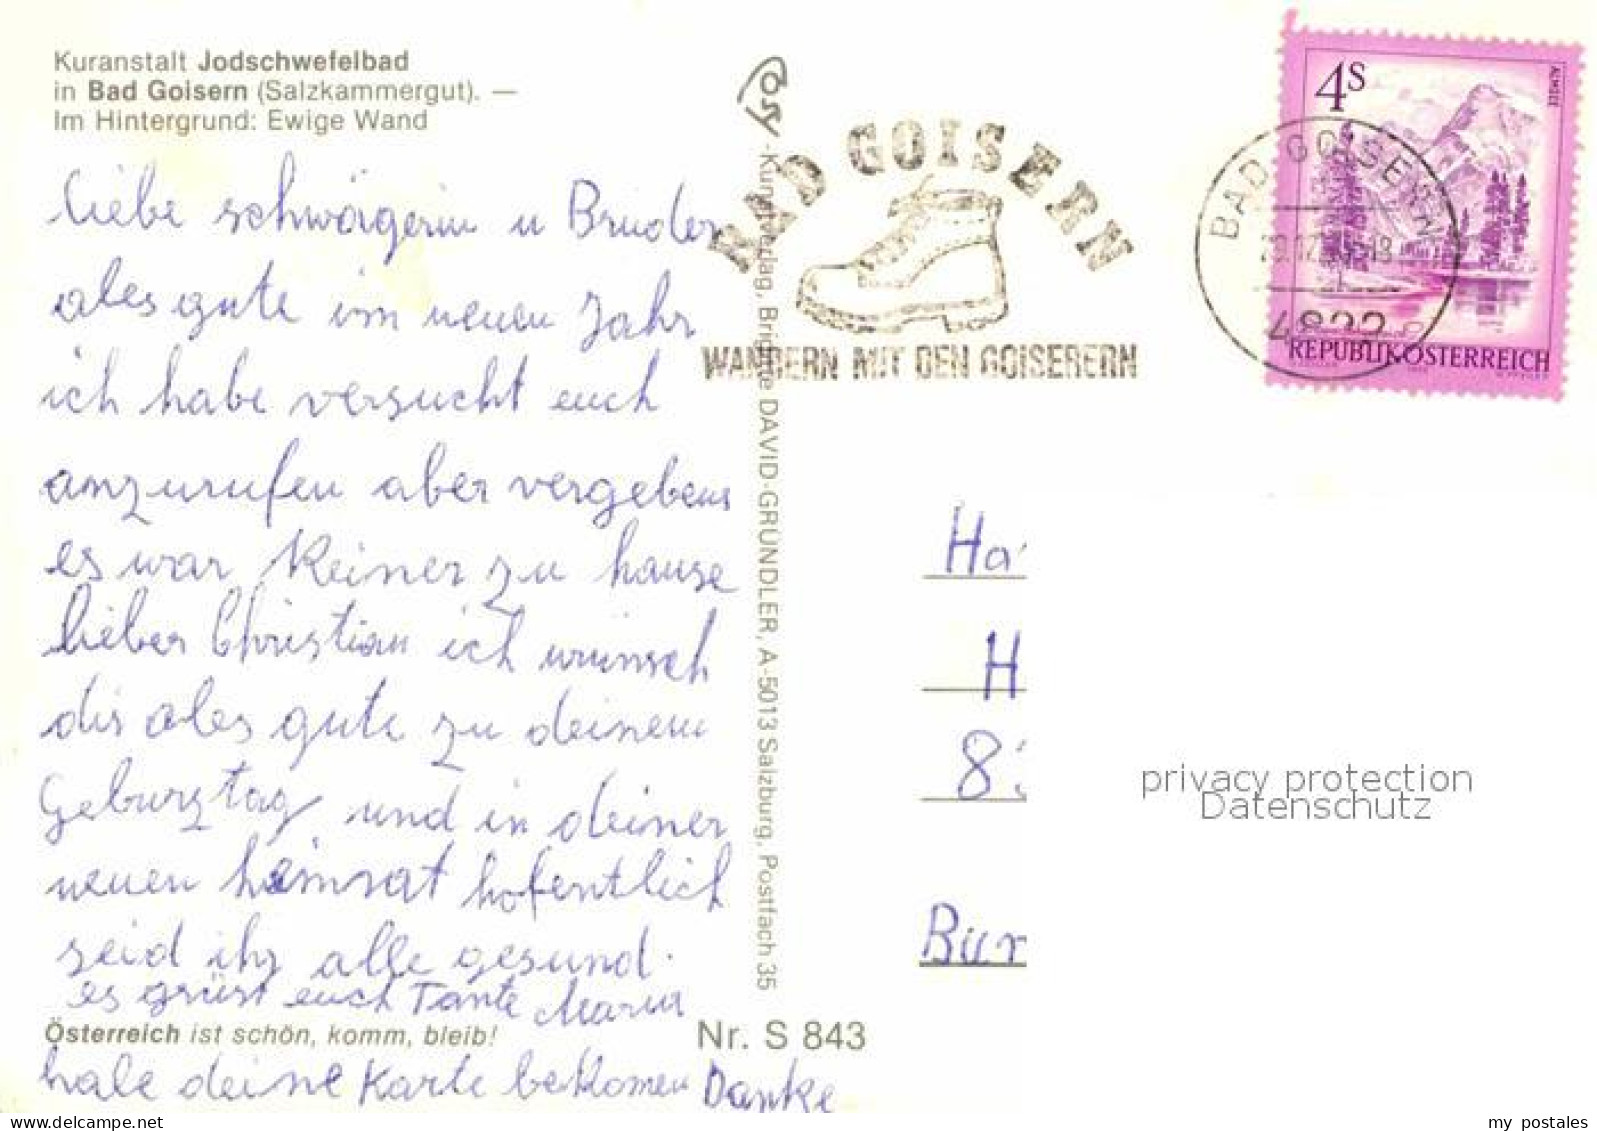 Kuranstalt Jodschwefelbad
in Bad Goisern (Salzkammergut). —
Im Hintergrund: Ewige Wand
liebe schwägerin u Bruder
ales gute im neuen Jahr
ich habe versucht euch
anzurufen aber vergebens
es war Keiner zu hause
lieber Christian ich wünsch
dir ales gute zu deinem
Geburztag und in deiner
neuen heimat hofentlich
seid ihr alle gesund.
es grüst euch Tante Maria
Österreich ist schön, komm, bleib!
habe deine Karte bekomen Danke
Nr. S 843
Cosy-Kunstverlag, Brigitte DAVID-GRÜNDLER, A-5013 Salzburg, Postfach 35
BAD GOISERN
WANDERN MIT DEN GOISERERN
4S
ALMSEE
REPUBLIK ÖSTERREICH
BAD GOISERN
4822
Ha
H
8
Bur
privacy protection
Datenschutz
my postales